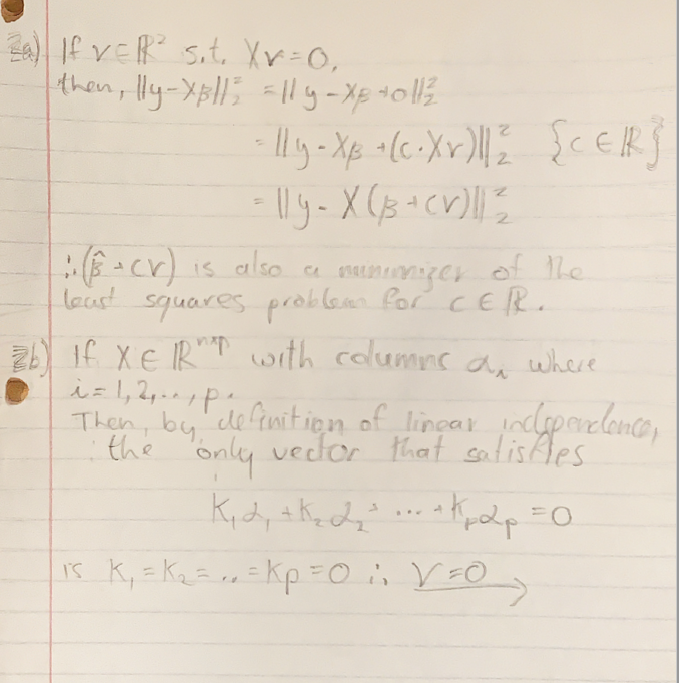 2a) If v ∈ ℝ² s.t. Xv = 0,
then, ||y-Xβ||₂² = ||y-Xβ+0||₂²
= ||y-Xβ+(c·Xv)||₂² {c ∈ ℝ}
= ||y-X(β+cv)||₂²
∴ (β̂+cv) is also a minimizer of the
least squares problem for c ∈ ℝ.
2b) If X ∈ ℝⁿˣᵖ with columns αᵢ where
i = 1, 2, .., p.
Then, by definition of linear independence,
the only vector that satisfies
K₁α₁ + K₂α₂ + ... + Kₚαₚ = 0
is K₁ = K₂ = .. = Kp = 0 ∴ V = 0